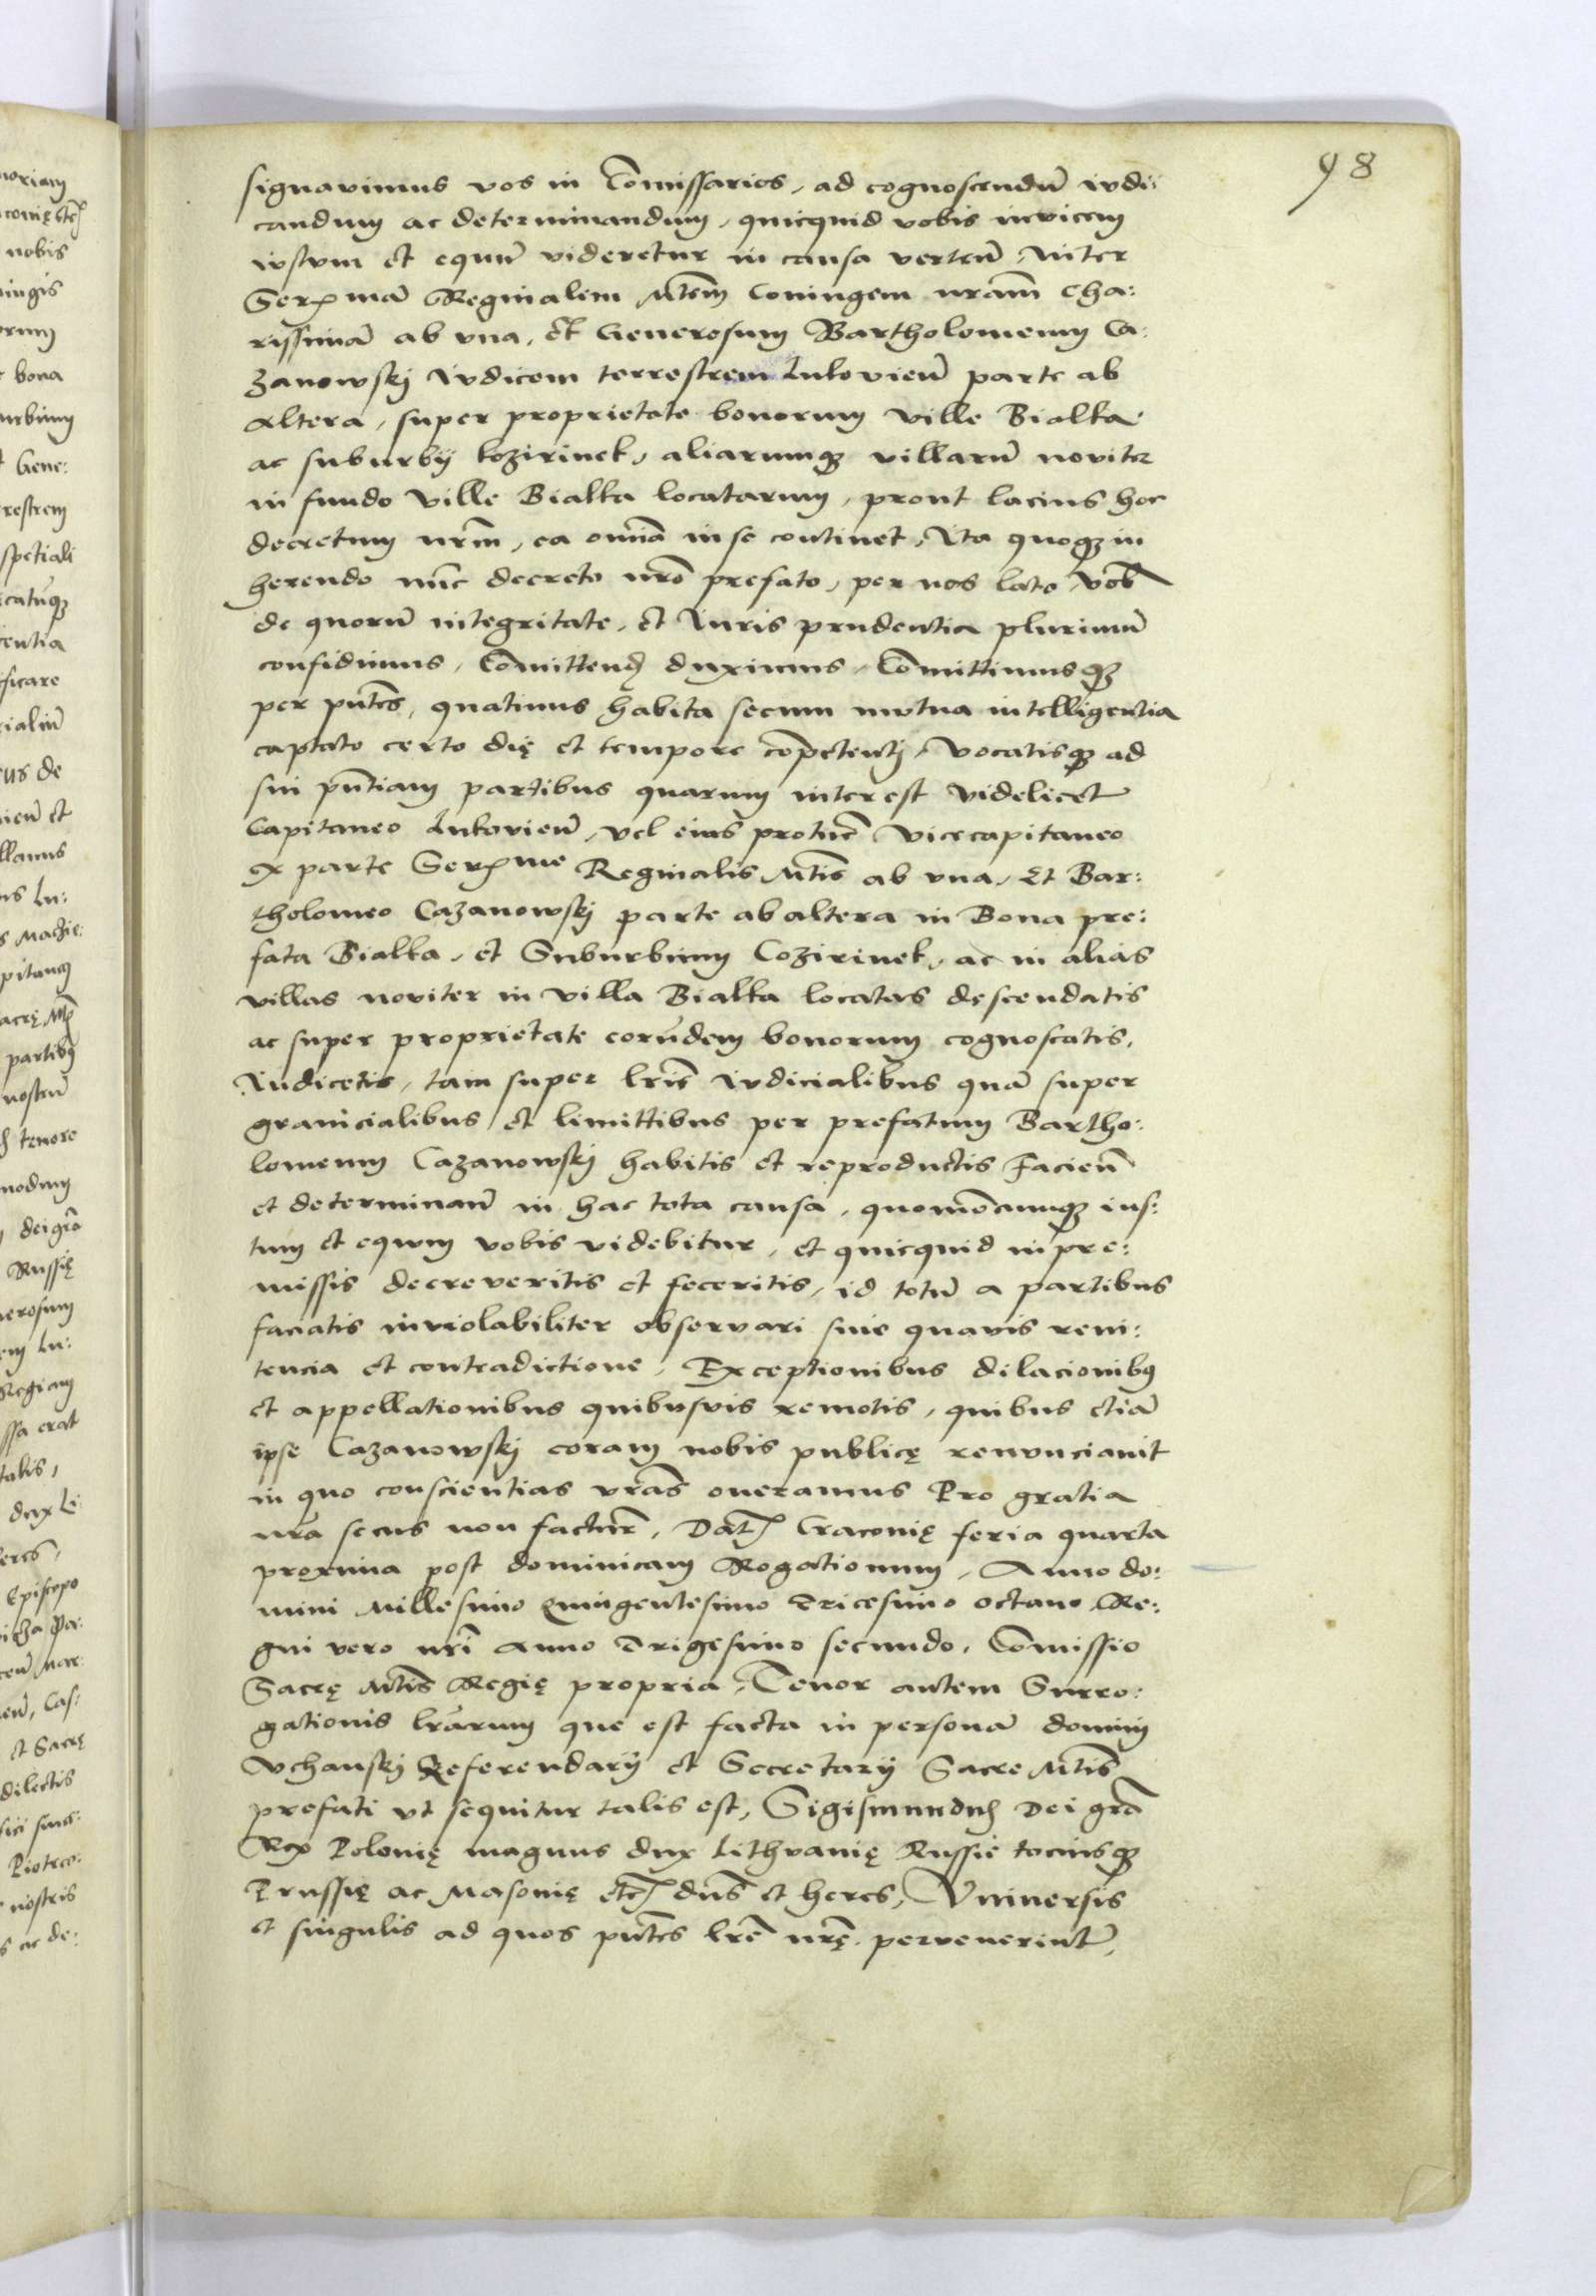 98
signavimus vos in Com̄issarios, ad cognoscendū iudi:
candum ac determinandum, quicquid vobis invicem
iustum et equū videretur in causa verteñ, inter
Serꝫmā Reginalem Mtem̄ Coniugem nram̄ Cha:
rissimā ab vna, et Generosum Bartholomeum Ca:
zanowskj Iudicem terrestrem Lukovieñ parte ab
altera, super proprietate bonorum ville Bialka
ac suburbÿ kozirinek, aliarumqꝫ villarū noviter
in fundo ville Bialka locatarum, prout lacius hoc
decretum nrm̄, ea om̄ia in se continet, Ita quoqꝫ in
herendo nūc decreto nrō prefato, per nos lato, vob̄
de quorū integritate, et Iuris prudentia plurimū
confidimus, Com̄ittendꝫ duximus, Com̄ittimusqꝫ
per pn̄tes, quatinus habita secum mutua intelligentia
captato certo dię et tempore cōpetentj, vocatisqꝫ ad
sui pn̄tiam partibus quarum interest videlicet
Capitaneo Lukovieñ, vel eius pro tūc Vicecapitaneo
ex parte Serꝫme Reginalis Mtis̄ ab vna, Et Bar:
tholomeo Cazanowskj parte ab altera in Bona pre:
fata Bialka, et Suburbium Cozirinek, ac in alias
villas noviter in villa Bialka locatas descendatis
ac super proprietate eorūdem bonorum cognoscatis,
Iudicetis, tam super lris̄ iudicialibus quā super
granicialibus et limittibus per prefatum Bartho:
lomeum Cazanowskj habitis et reproductis facieñ
et determinañ in hac tota causa, quomōcunqꝫ ius:
tum et equum vobis videbitur, et quicquid in pre:
missis decreveritis et feceritis, id totū a partibus
faciatis inviolabiliter observari sine quavis reni:
tencia et contradictione, Exceptionibus dilacionibꝫ
et appellationibus quibusvis remotis, quibus etiā
ipse Cazanowskj coram nobis publicę renunciavit
in quo conscientias vrās oneramus Pro gratia
nrā secus non facturī, Datꝫ Cracovię feria quarta
proxima post dominicam Rogationum, Anno do:
mini Millesimo Quingentesimo Tricesimo octavo, Re:
gni vero nrī Anno Trigesimo secundo, Com̄issio
Sacrę Mtis̄ Regię propria, Tenor autem Surro:
gationis lrārum que est facta in personā dominj
Vchanskj Referendarÿ et Secretarÿ Sacre Mtis̄
prefati ut sequitur talis est, Sigismundus Dei grā
Rex Polonię magnus dux Lithvanię Russie tociusqꝫ
Prussię ac Masovię etcꝫ dn̄s et heres, Vniversis
et singulis ad quos pn̄tes lrē nrę pervenerint,